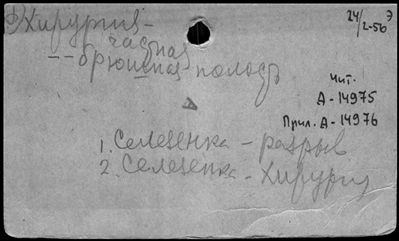 Хирургия -
24/2-56 Э
частная
-- брюшная полость
Чит.
А - 14975
Прил. А - 14976
А
1. Селезенка - разрыв
2. Селезенка - Хирургия